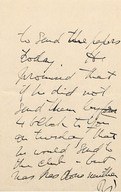 to send the papers
today. He
promised that
if he did not
send them
to you
on Tuesday that
he would send to
the club - but
has he done neither